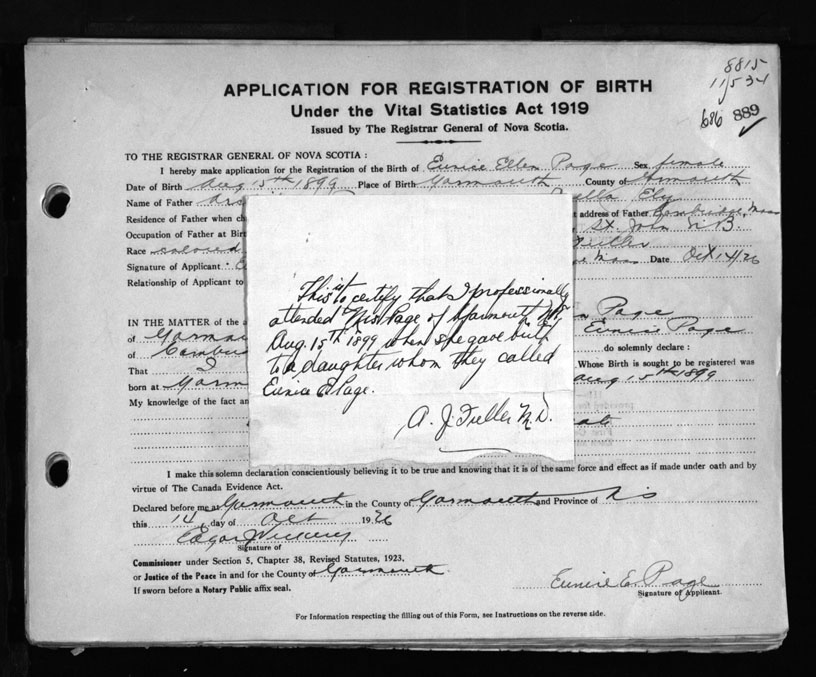 8815
11/5 34
686 889
APPLICATION FOR REGISTRATION OF BIRTH
Under the Vital Statistics Act 1919
Issued by The Registrar General of Nova Scotia.
TO THE REGISTRAR GENERAL OF NOVA SCOTIA :
I hereby make application for the Registration of the Birth of Eunice Ellen Page Sex female
Date of Birth Aug 15th 1899 Place of Birth Yarmouth County of Yarmouth
Name of Father
Residence of Father when ch address of Father Cambridge, Mass
Occupation of Father at Birt St. John N B.
Race colored
Signature of Applicant Mass Date Oct 14/26
Relationship of Applicant to
This is to certify that I professionally
attended Mrs Page of Yarmouth N.S.
Aug. 15th 1899 when she gave birth
to a daughter whom they called
Eunice E Page.
A. J. Fuller M.D.
IN THE MATTER of the a Page
of Yarmou Eunice Page
of Cambri do solemnly declare :
That I Whose Birth is sought to be registered was
born at Yarm Aug 15th 1899
My knowledge of the fact an
I make this solemn declaration conscientiously believing it to be true and knowing that it is of the same force and effect as if made under oath and by
virtue of The Canada Evidence Act.
Declared before me at Yarmouth in the County of Yarmouth and Province of N S
this 14 day of Oct 1926
Edgar
Signature of
Commissioner under Section 5, Chapter 38, Revised Statutes, 1923.
or Justice of the Peace in and for the County of Yarmouth
If sworn before a Notary Public affix seal.
Eunice E. Page
Signature of Applicant.
For Information respecting the filling out of this Form, see Instructions on the reverse side.